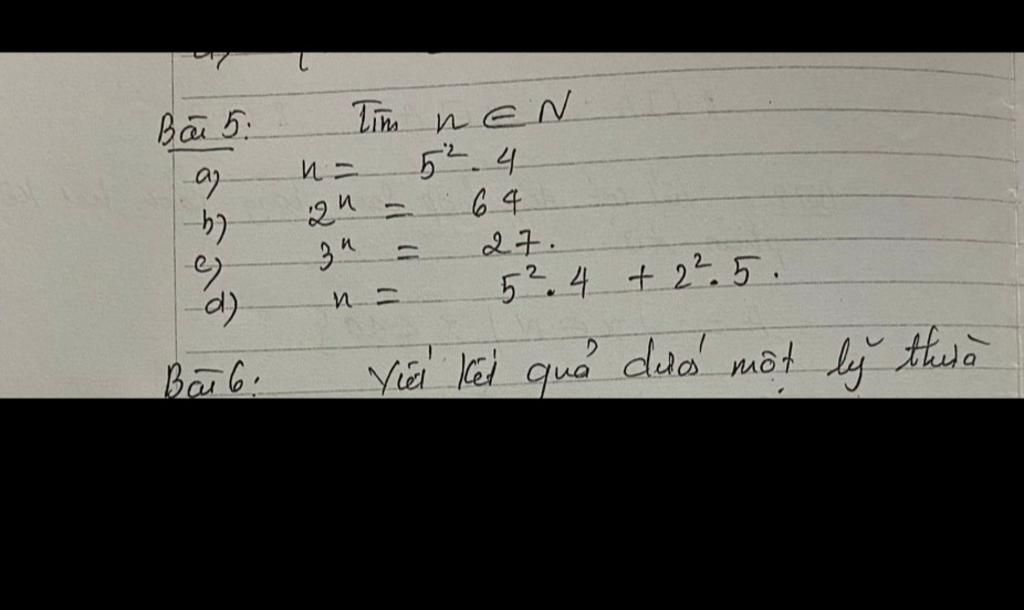 Bài 5: Tìm n ∈ N
a) n = 5². 4
b) 2ⁿ = 64
c) 3ⁿ = 27.
d) n = 5². 4 + 2². 5.
Bài 6: Viết kết quả dưới một lỹ thừa